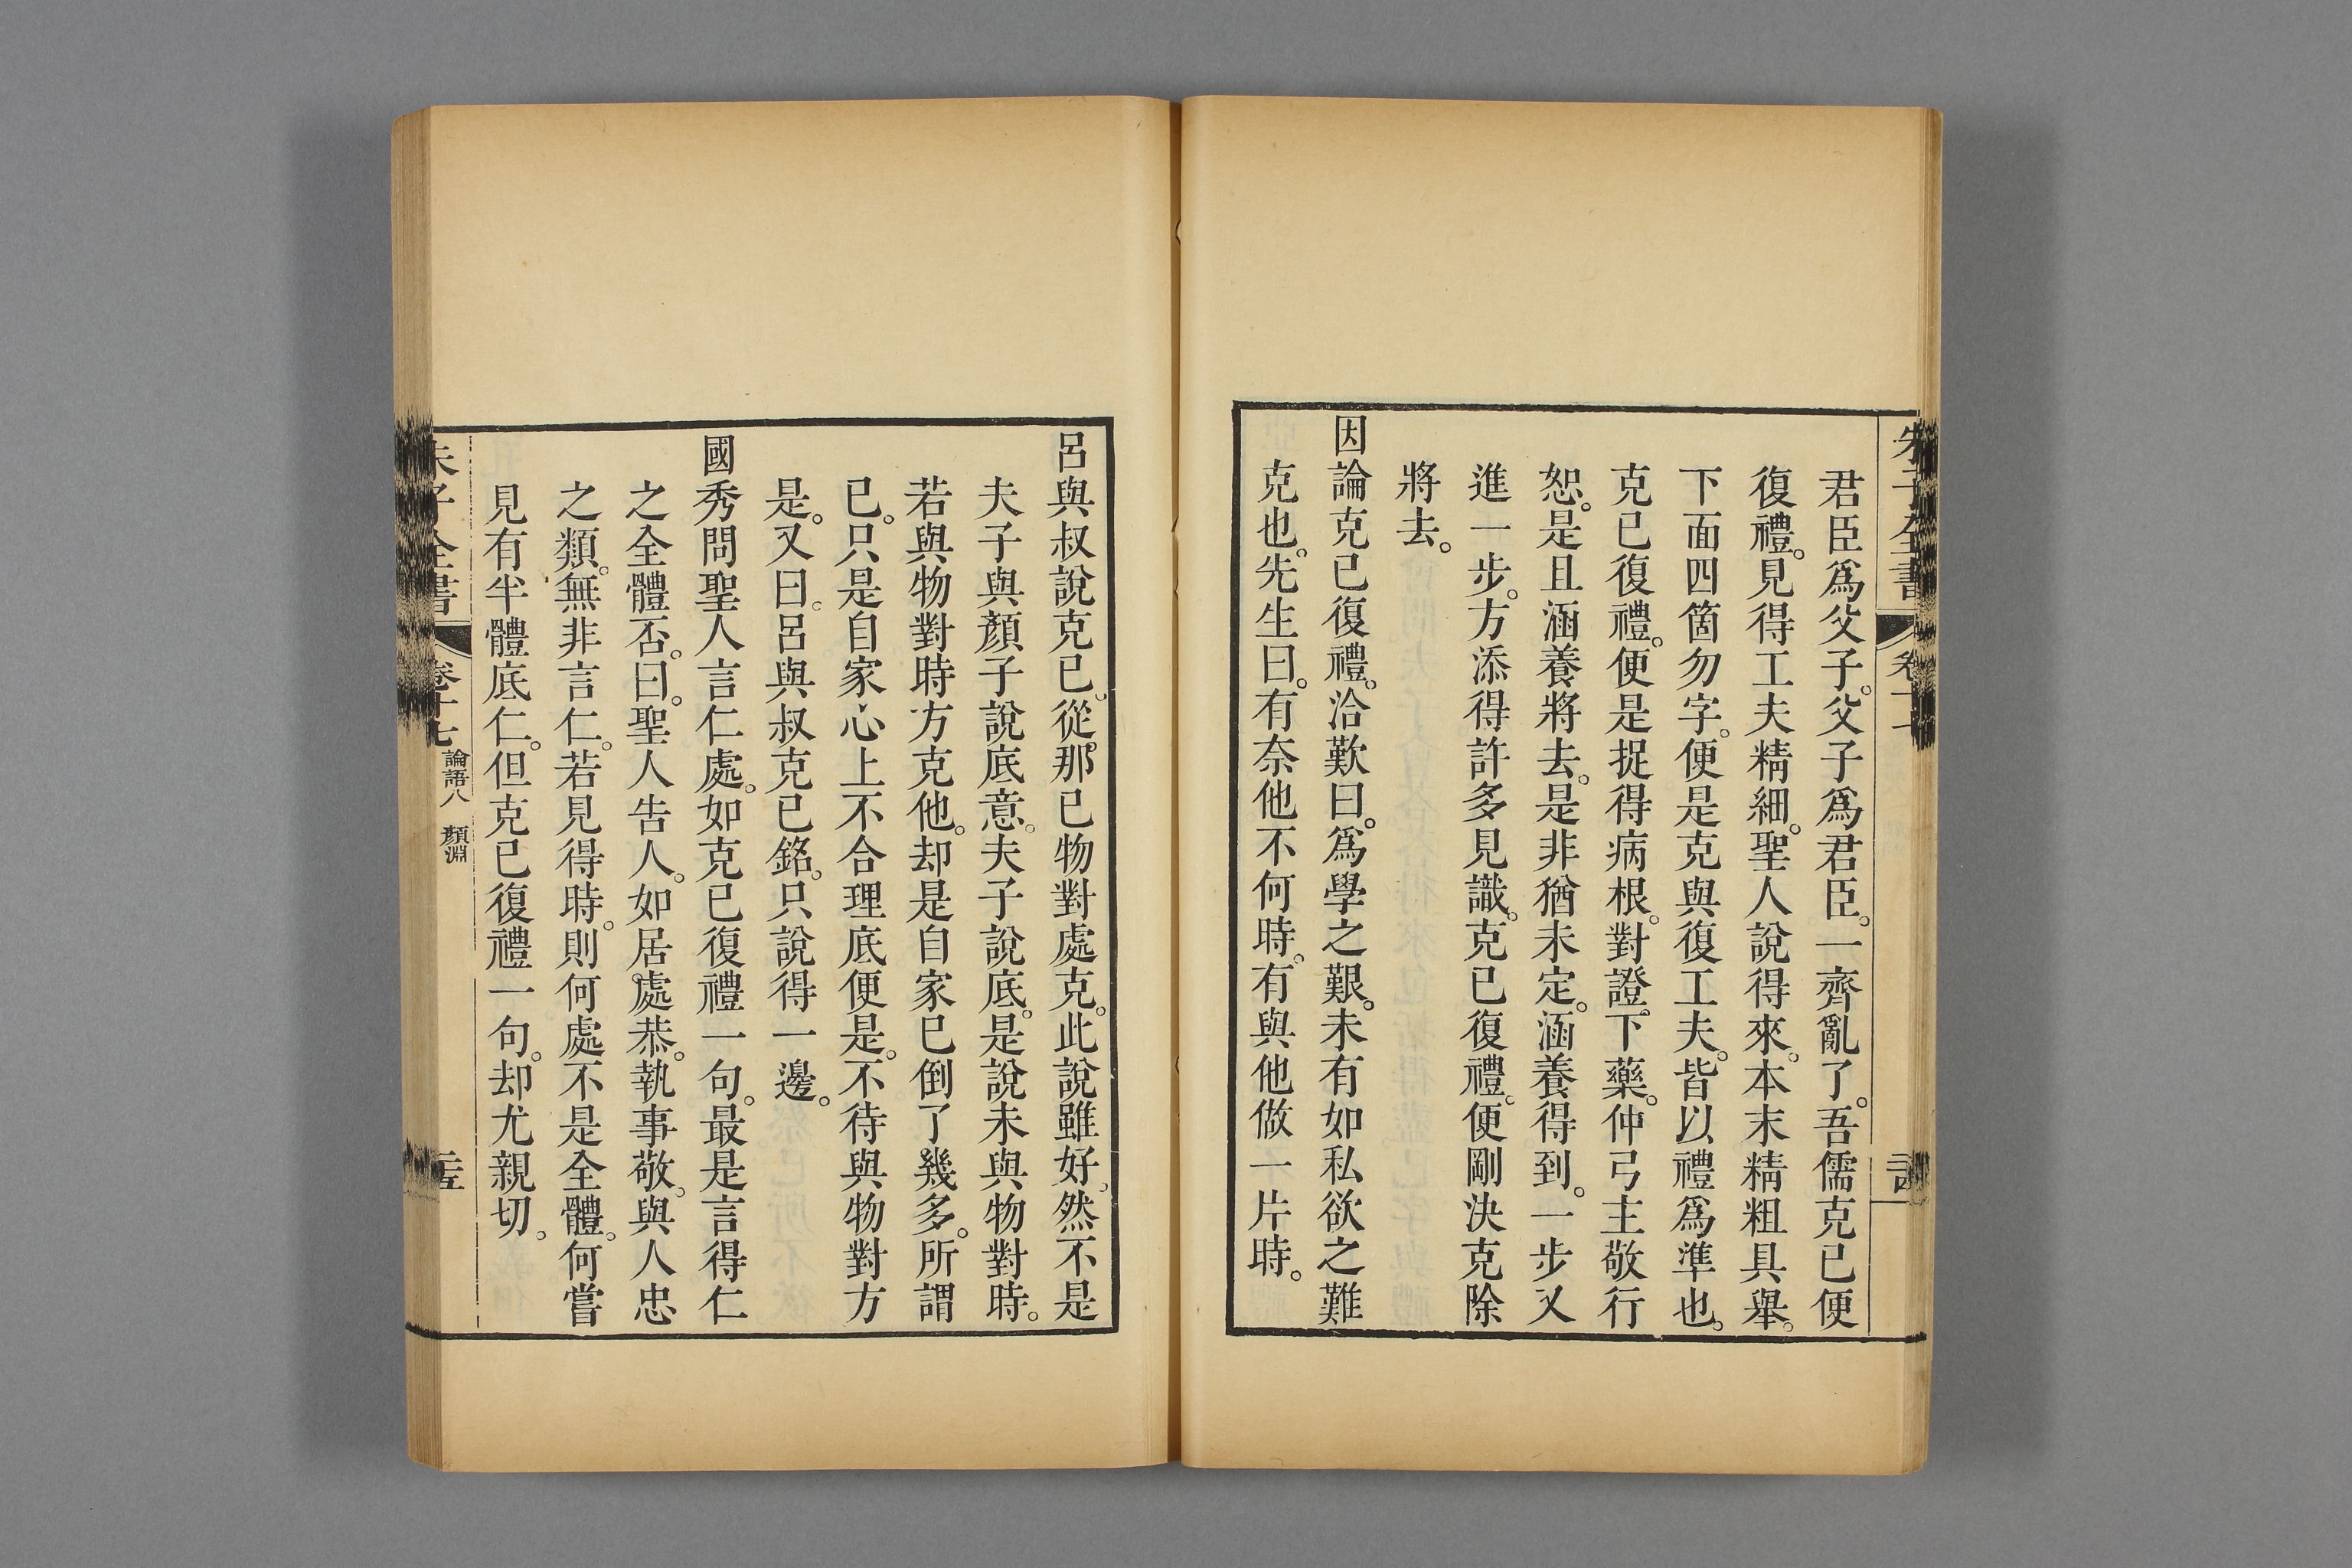 君臣爲父子。父子爲君臣。一齊亂了。吾儒克已便
復禮。見得工夫精細。聖人說得來。本末精粗具舉。
下面四箇勿字。便是克與復工夫。皆以禮爲準也。
克已復禮。便是捉得病根。對證下藥。仲弓主敬行
恕。是且涵養將去。是非猶未定。涵養得到。一步又
進一步。方添得許多見識。克已復禮。便剛決克除
將去。
因論克已復禮。洽歎曰。爲學之艱。未有如私欲之難
克也。先生曰。有奈他不何時。有與他做一片時。
呂與叔說克已。從那已物對處克。此說雖好。然不是
夫子與顏子說底意。夫子說底。是說未與物對時。
若與物對時方克他。却是自家已倒了幾多。所謂
已。只是自家心上不合理底便是。不待與物對方
是。又曰。呂與叔克已銘。只說得一邊。
國秀問聖人言仁處。如克已復禮一句。最是言得仁
之全體否。曰。聖人告人。如居處恭。執事敬。與人忠
之類。無非言仁。若見得時。則何處不是全體。何嘗
見有半體底仁。但克已復禮一句。却尤親切。
朱子全書 卷十七 論語八 顏淵